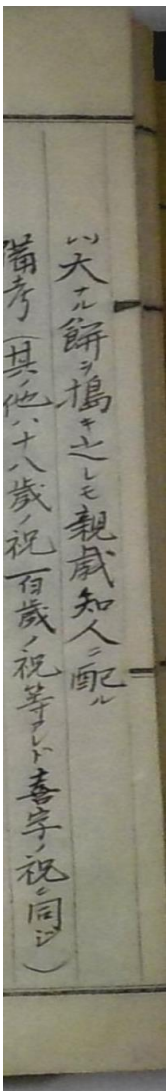 ハ、大ナル餅ヲ搗キ之レモ親戚知人ニ配ル
備考（其ノ他八十八歳ノ祝一百歳ノ祝等アレド喜字ノ祝ニ同ジ）